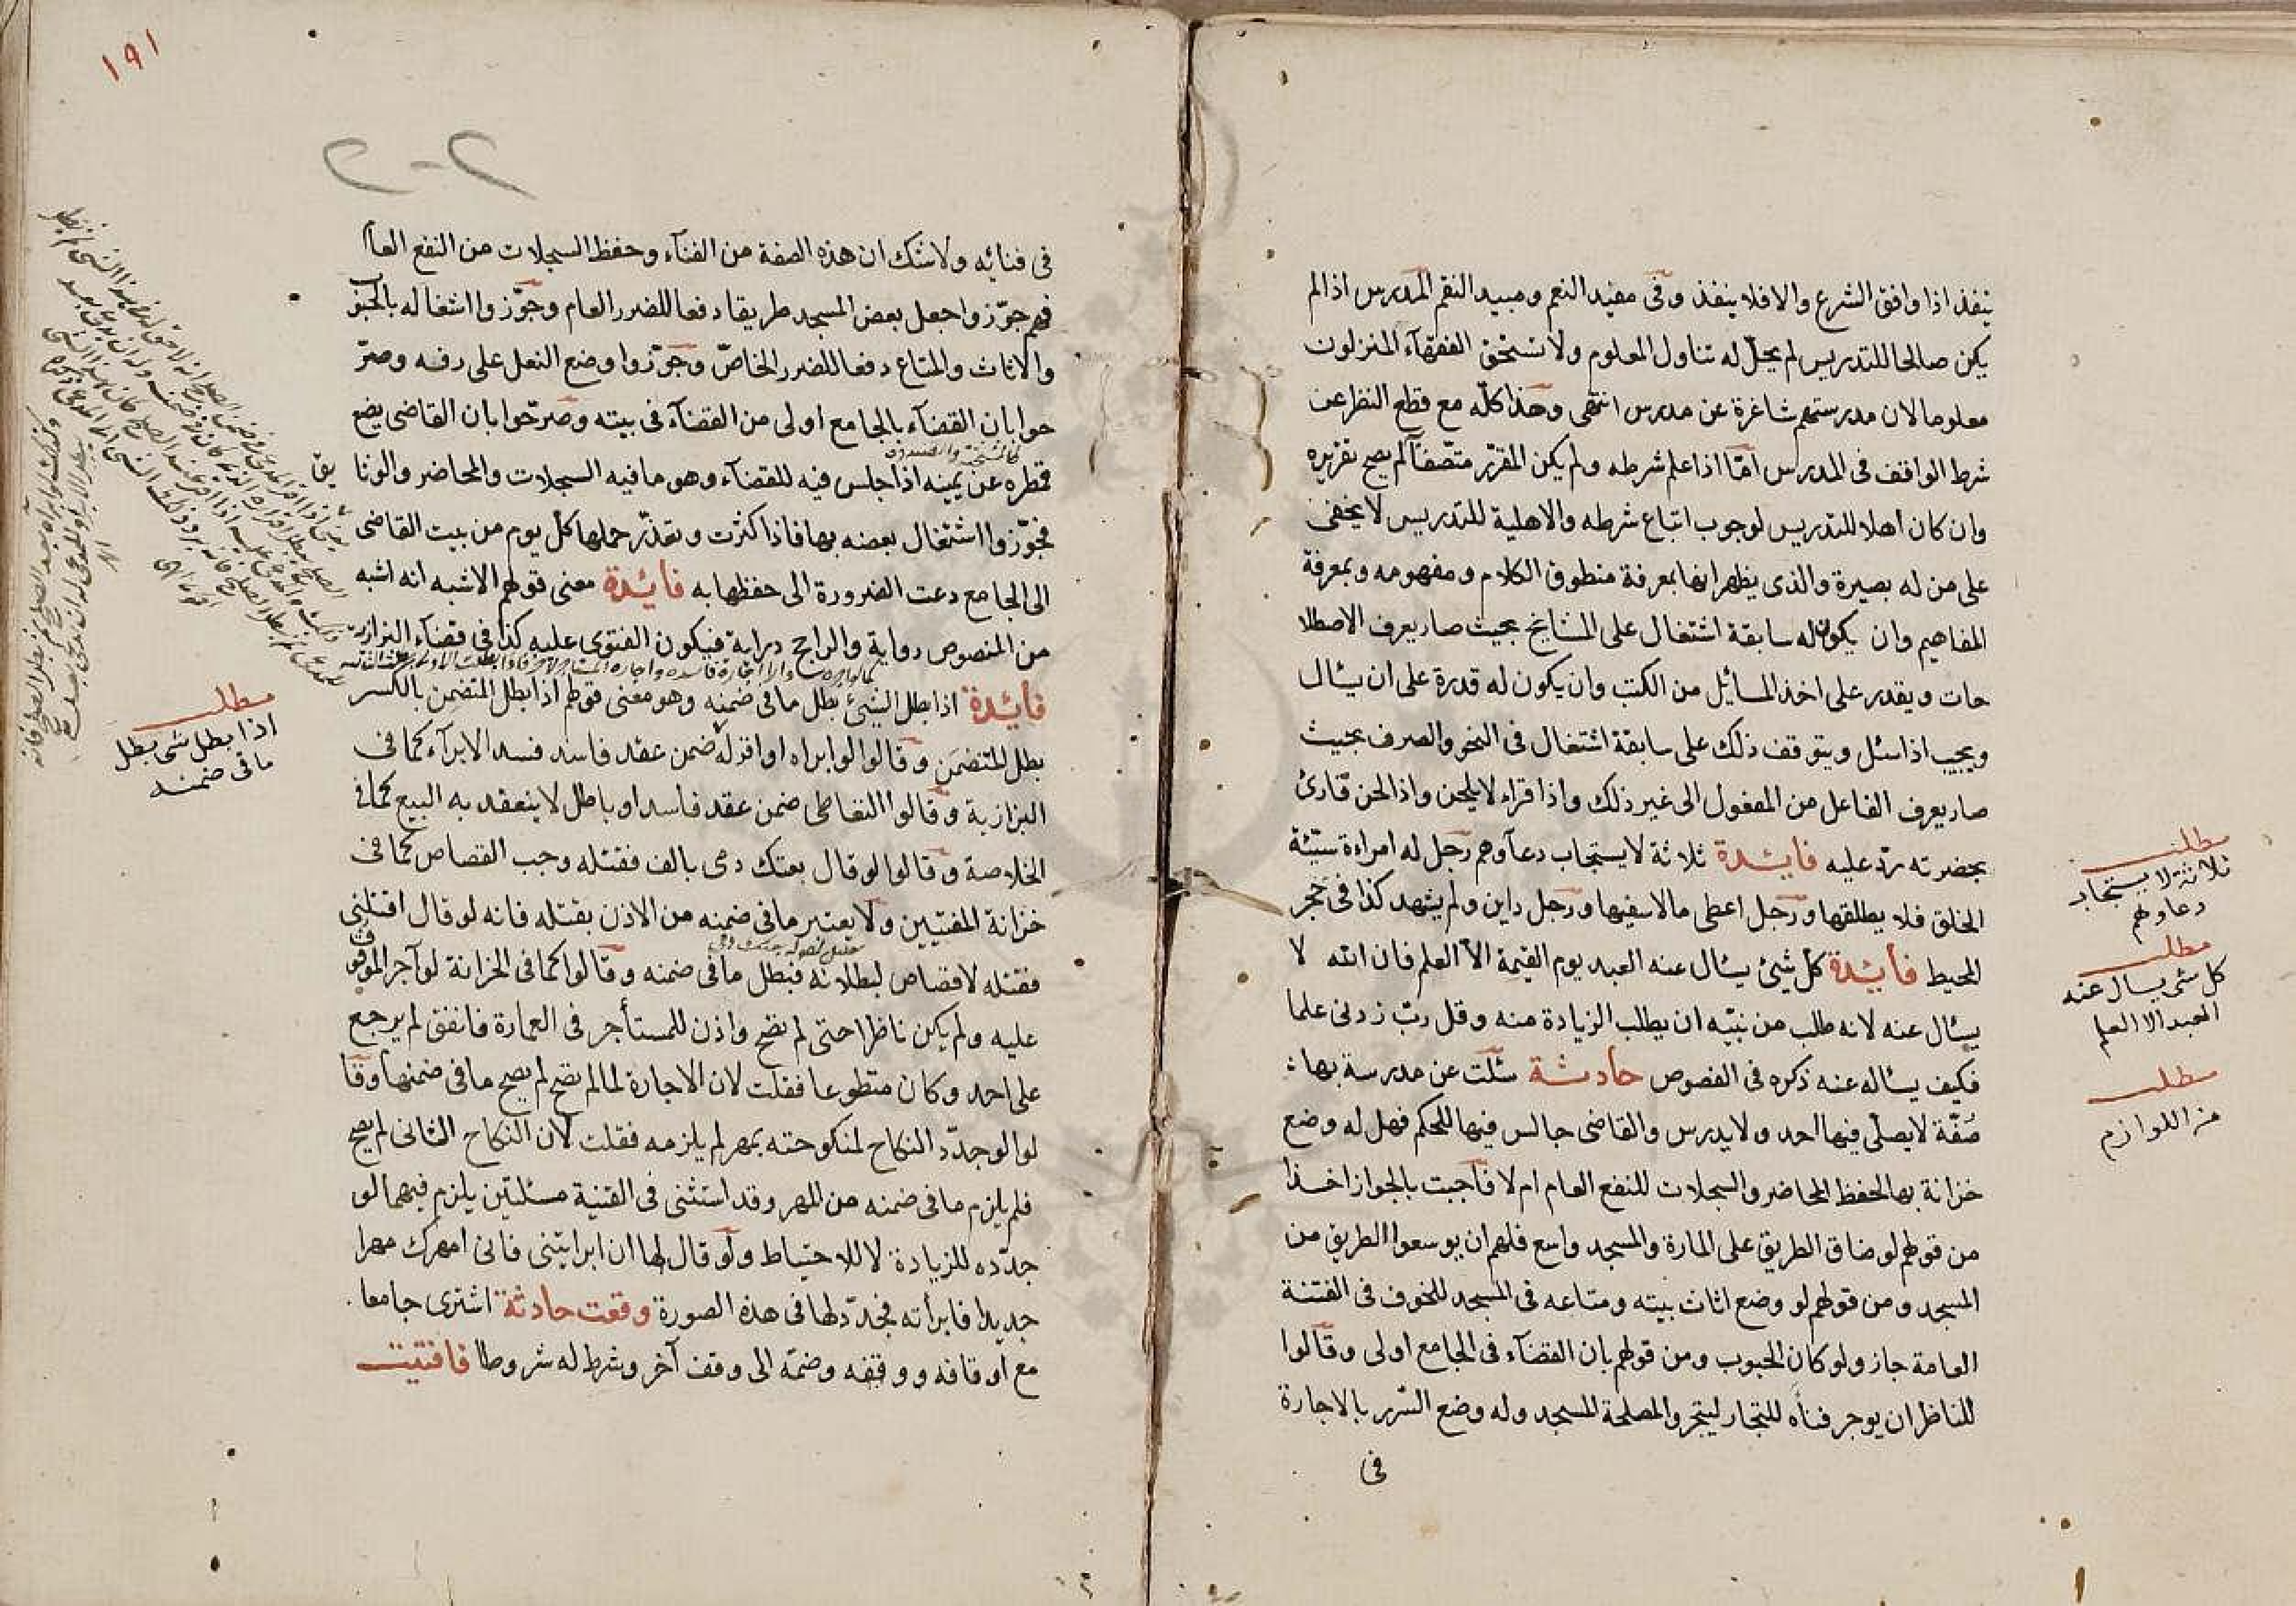 ينفذ اذا وافق الشرع والا فلا ينفذ وفى مفيد النعم ومبيد النقم المدرس اذا لم
يكن صالحا للتدريس لم يحل له تناول المعلوم ولا تستحق الفقهآء المنزلون
معلوما لان مدرستهم شاغرة عن مدرس انتهى وهذا كله مع قطع النظر عن
شرط الواقف فى المدرس امّا اذا علم شرطه ولم يكن المقرّر متّصفا لم يصح تقريره
وان كان اهلا للتدريس لوجوب اتباع شرطه والاهلية للتدريس لا يخفى
على من له بصيرة والذى يظهر انها بمعرفة منطوق الكلام ومفهومه وبمعرفة
المفاهيم وان يكون له سابقة اشتغال على المشايخ بحيث صار يعرف الاصطلا
حات ويقدر على اخذ المسائل من الكتب وان يكون له قدرة على ان يسٔال
ويجيب اذا سئل ويتوقف ذلك على سابقة اشتغال فى النحو والصرف بحيث
صار يعرف الفاعل من المفعول الى غير ذلك واذا قراء لا يلحن واذا لحن قارئ
بحضرته ردّ عليه فائدة ثلاثة لا يستجاب دعآوهم رجل له امراءة سيّئة
الخلق فلا يطلقها ورجل اعطى ماله سفيها ورجل داين ولم يشهد كذا فى حجر
المحيط فائدة كل شئ يسٔال عنه العبد يوم القيمة الا العلم فان الله لا
يسٔال عنه لانه طلب من نبيّه ان يطلب الزيادة منه وقل ربّ زدنى علما
فكيف يسٔاله عنه ذكره فى الفصوص حادثة سئلت عن مدرسة بها
صُفّة لا يصلّى فيها احد ولا يدرس والقاضى جالس فيها للحكم فهل له وضع
خزانة بها لحفظ المحاضر والسجلات للنفع العام ام لا فاجبت بالجواز اخذا
من قولهم لو ضاق الطريق على المارة والمسجد واسع فلهم ان يوسعوا الطريق من
المسجد ومن قولهم لو وضع اثاث بيته ومتاعه فى المسجد للخوف فى الفتنة
العامة جاز ولو كان الحبوب ومن قولهم بان القضآء فى الجامع اولى وقالوا
للناظر ان يوجر فنآه للتجار ليتجروا لمصلحة المسجد وله وضع السّرر بالاجارة
فى
مطلب
ثلاثة لا يستجاب
دعاوهم
مطلب
كل شى يسال عنه
العبد الا العلم
مطلب
من اللوازم
١٩١
٢-٢
فى فنائه ولا شك ان هذه الصفة من الفنآء وحفظ السجلات من النفع العا
فهم جوّزوا جعل بعض المسجد طريقا دفعا للضرر العام وجوّزوا اشغاله بالحبوب
والاثاث والمتاع دفعا للضرر الخاصّ وجوّزوا وضع النعل على رفه وصرّ
حوا بان القضآء بالجامع اولى من القضآء فى بيته وصرّحوا بان القاضى يضع
قمطره عن يمينه اذا جلس فيه للقضآء وهو ما فيه السجلات والمحاضر والوثا
يق
فجوّزوا اشتغال بعضه بها فاذا كثرت وتعذّر حملها كل يوم من بيت القاضى
الى الجامع دعت الضرورة الى حفظها به فائدة معنى قولهم الاشبه انه اشبه
من المنصوص رواية والراجح دراية فيكون الفتوى عليه كذا فى قضآء البزازية
فائدة اذا بطل الشئ بطل ما فى ضمنه وهو معنى قولهم اذا بطل المتضمن بالكسر
بطل المتضمَن وقالوا لو ابراه او اقر له ضمن عقد فاسد فسد الابرآء كما فى
البزازية وقالوا التعاطى ضمن عقد فاسد او باطل لا ينعقد به البيع كما فى
الخلاصة وقالوا لو قال بعتك دمى بالف فقتله وجب القصاص كما فى
خزانة المفتيين ولا يعتبر ما فى ضمنه من الاذن بقتله فانه لو قال اقتلنى
فقتله لا قصاص لبطلانه فبطل ما فى ضمنه وقالوا كما فى الخزانة لو آجر الموقوف
عليه ولم يكن ناظرا حتى لم تصح واذن للمستأجر فى العمارة فانفق لم يرجع
على احد وكان متطوعا فقلت لان الاجارة لما لم تصح لم يصح ما فى ضمنها وقا
لوا لو جدّد النكاح لمنكوحته بمهر لم يلزمه فقلت لان النكاح الثانى لم يصح
فلم يلزم ما فى ضمنه من المهر وقد استثنى فى القنية مسئلتين يلزم فيهما لو
جدّده للزيادة لا للاحتياط ولو قال لها ان ابرايتنى فانى امهرك مهرا
جديدا فابرأته فجدّد لها فى هذه الصورة وقعت حادثة اشترى جامعا
مع اوقافه ووقفه وضمّه الى وقف آخر وشرط له شروطا فافتيت
مطلب
اذا بطل شى بطل
ما فى ضمنه